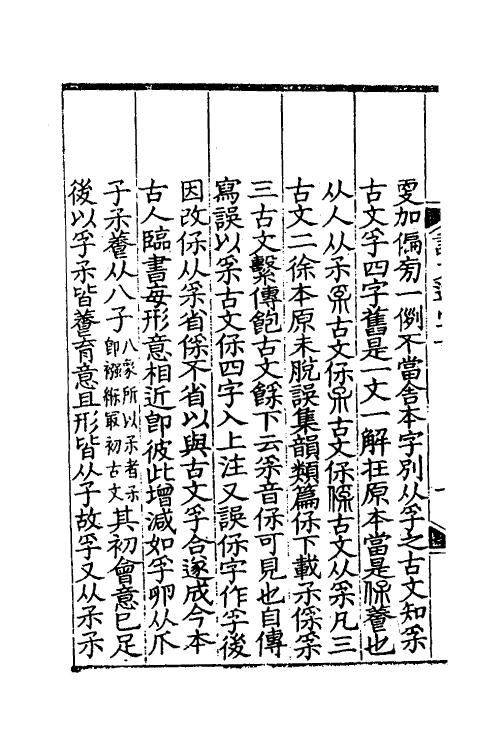 更加偏旁一例不當舍本字別从孚之古文知𤓽
古文孚四字舊是一文一解在原本當是保養也
从人从𤓯𤓽古文保𤔍古文保𠊻古文从𤓽凡三
古文二徐本原未脫誤集韻類篇保下載𤓯保𤓽
三古文繫傳飽古文餘下云𤓽音保可見也自傳
寫誤以𤓽古文保四字入上注又誤保字作孚後
因改保从𤓽省保不省以與古文孚合遂成今本
古人臨書每形意相近卽彼此增減如孚卵从爪
子𤓯養从八子八象所以𤓯者𤓯卽襁緥最初古文其初會意已足
後以孚𤓯皆養育意且形皆从子故孚又从𤓯𤓯